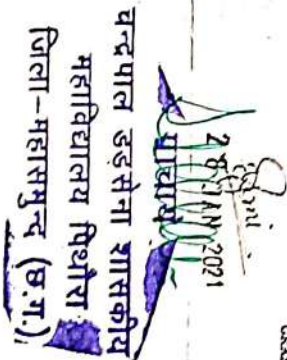 28 JAN 2021
प्राचार्य
चन्द्रपाल डडसेना शासकीय
महाविद्यालय पिथौरा
जिला-महासमुन्द (छ.ग.)